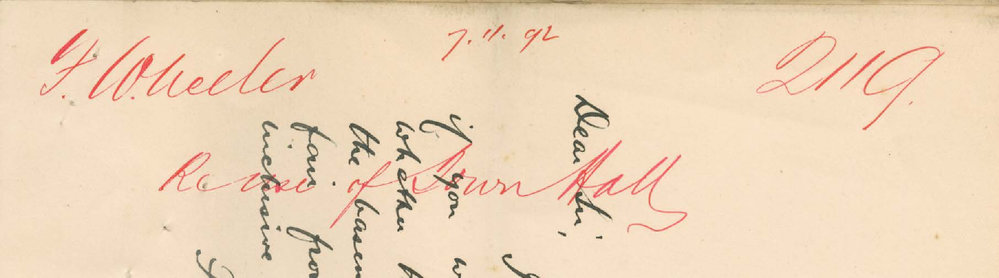 F. Wheeler
7.11.92
2119.
Re use of Town Hall
Dear Sir,
if you w
whether
the basem
fair from
inclusive